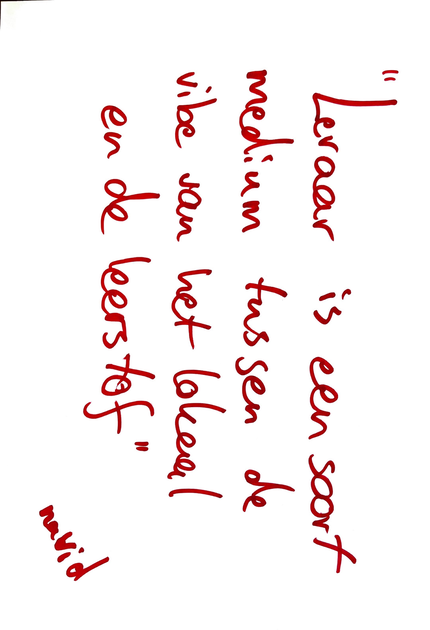 "Leraar is een soort
medium tussen de
vibe van het lokaal
en de leerstof"
navid